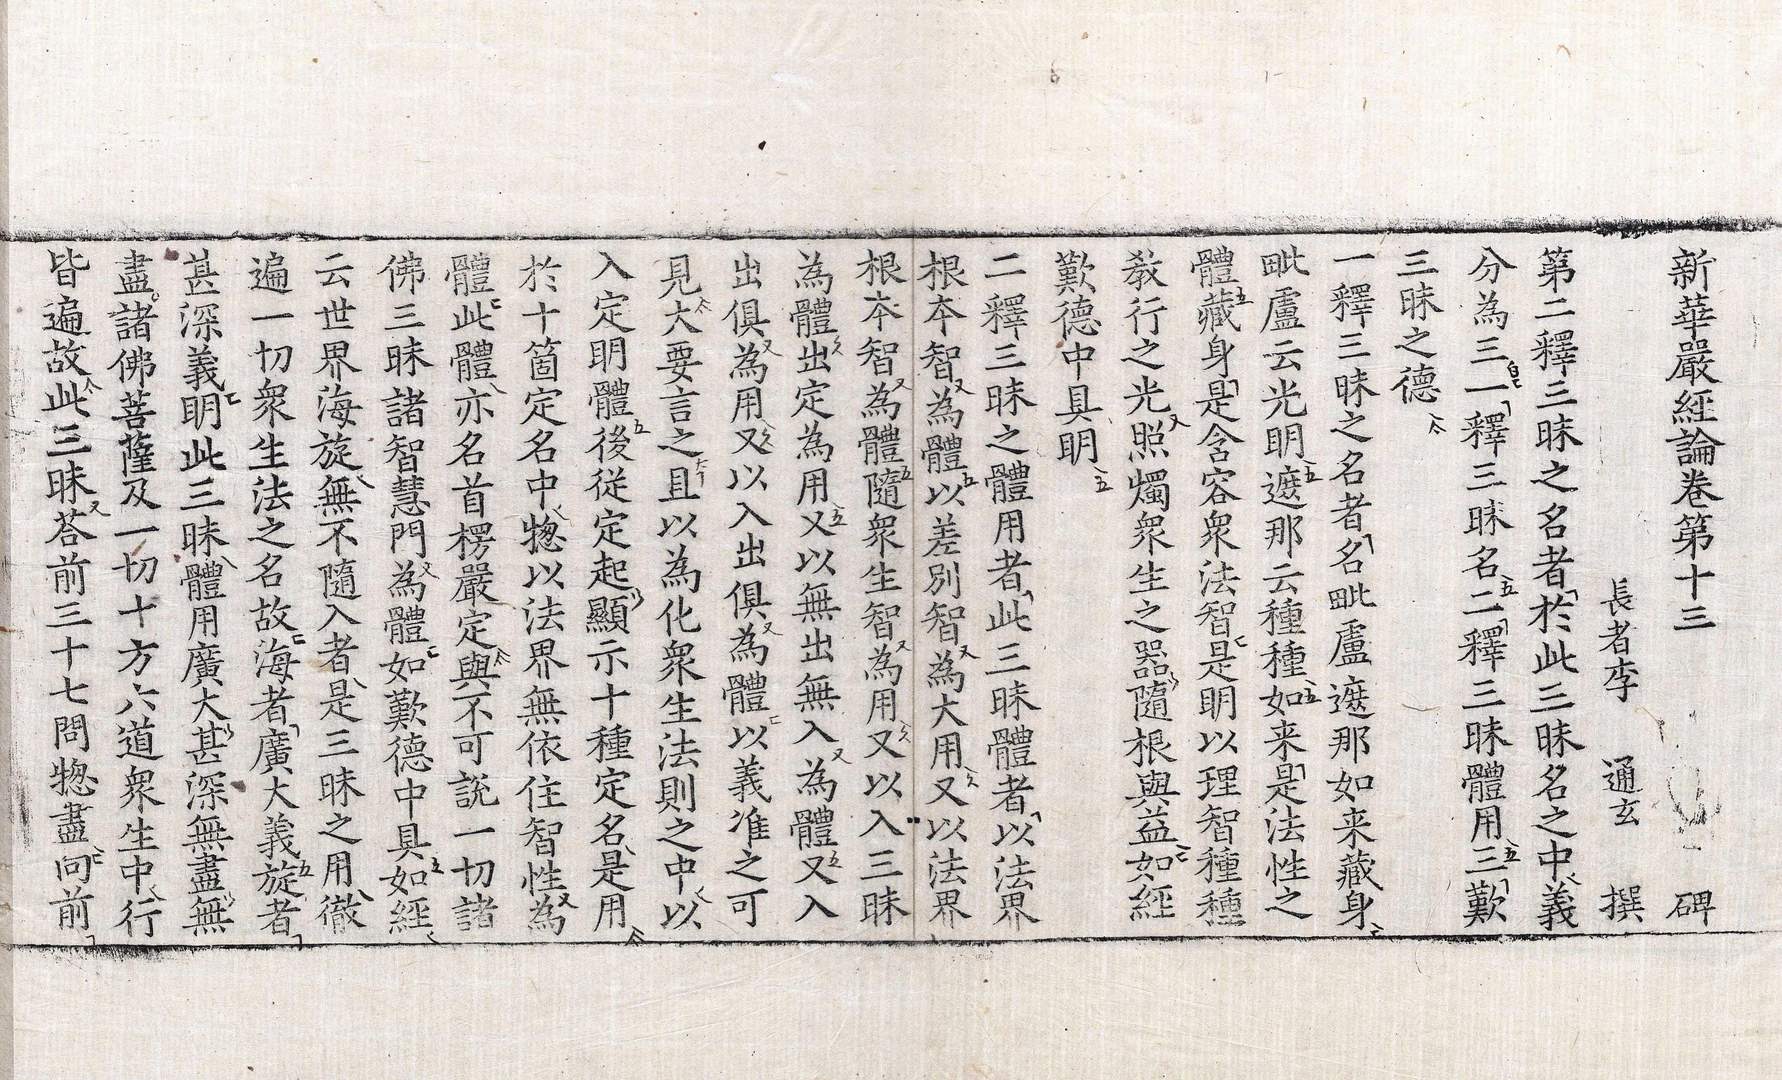 新華嚴經論卷第十三 碑
長者李 通玄 撰
第二釋三昧之名者於此三昧名之中義
分為三一釋三昧名二釋三昧體用三歎
三昧之德
一釋三昧之名者名毗盧遮那如来藏身
毗盧云光明遮那云種種如来是法性之
體藏身是含容衆法智是明以理智種種
教行之光照燭衆生之器隨根與益如經
歎德中具明
二釋三昧之體用者此三昧體者以法界
根本智為體以差別智為大用又以法界
根本智為體隨衆生智為用又以入三昧
為體出定為用又以無出無入為體又入
出俱為用又以入出俱為體以義准之可
見大要言之且以為化衆生法則之中以
入定明體後従定起顯示十種定名是用
於十箇定名中惣以法界無依住智性為
體此體亦名首楞嚴定與不可說一切諸
佛三昧諸智慧門為體如歎德中具如經
云世界海旋無不隨入者是三昧之用徹
遍一切衆生法之名故海者廣大義旋者
甚深義明此三昧體用廣大甚深無盡無
盡諸佛菩薩及一切十方六道衆生中行
皆遍故此三昧荅前三十七問惣盡向前